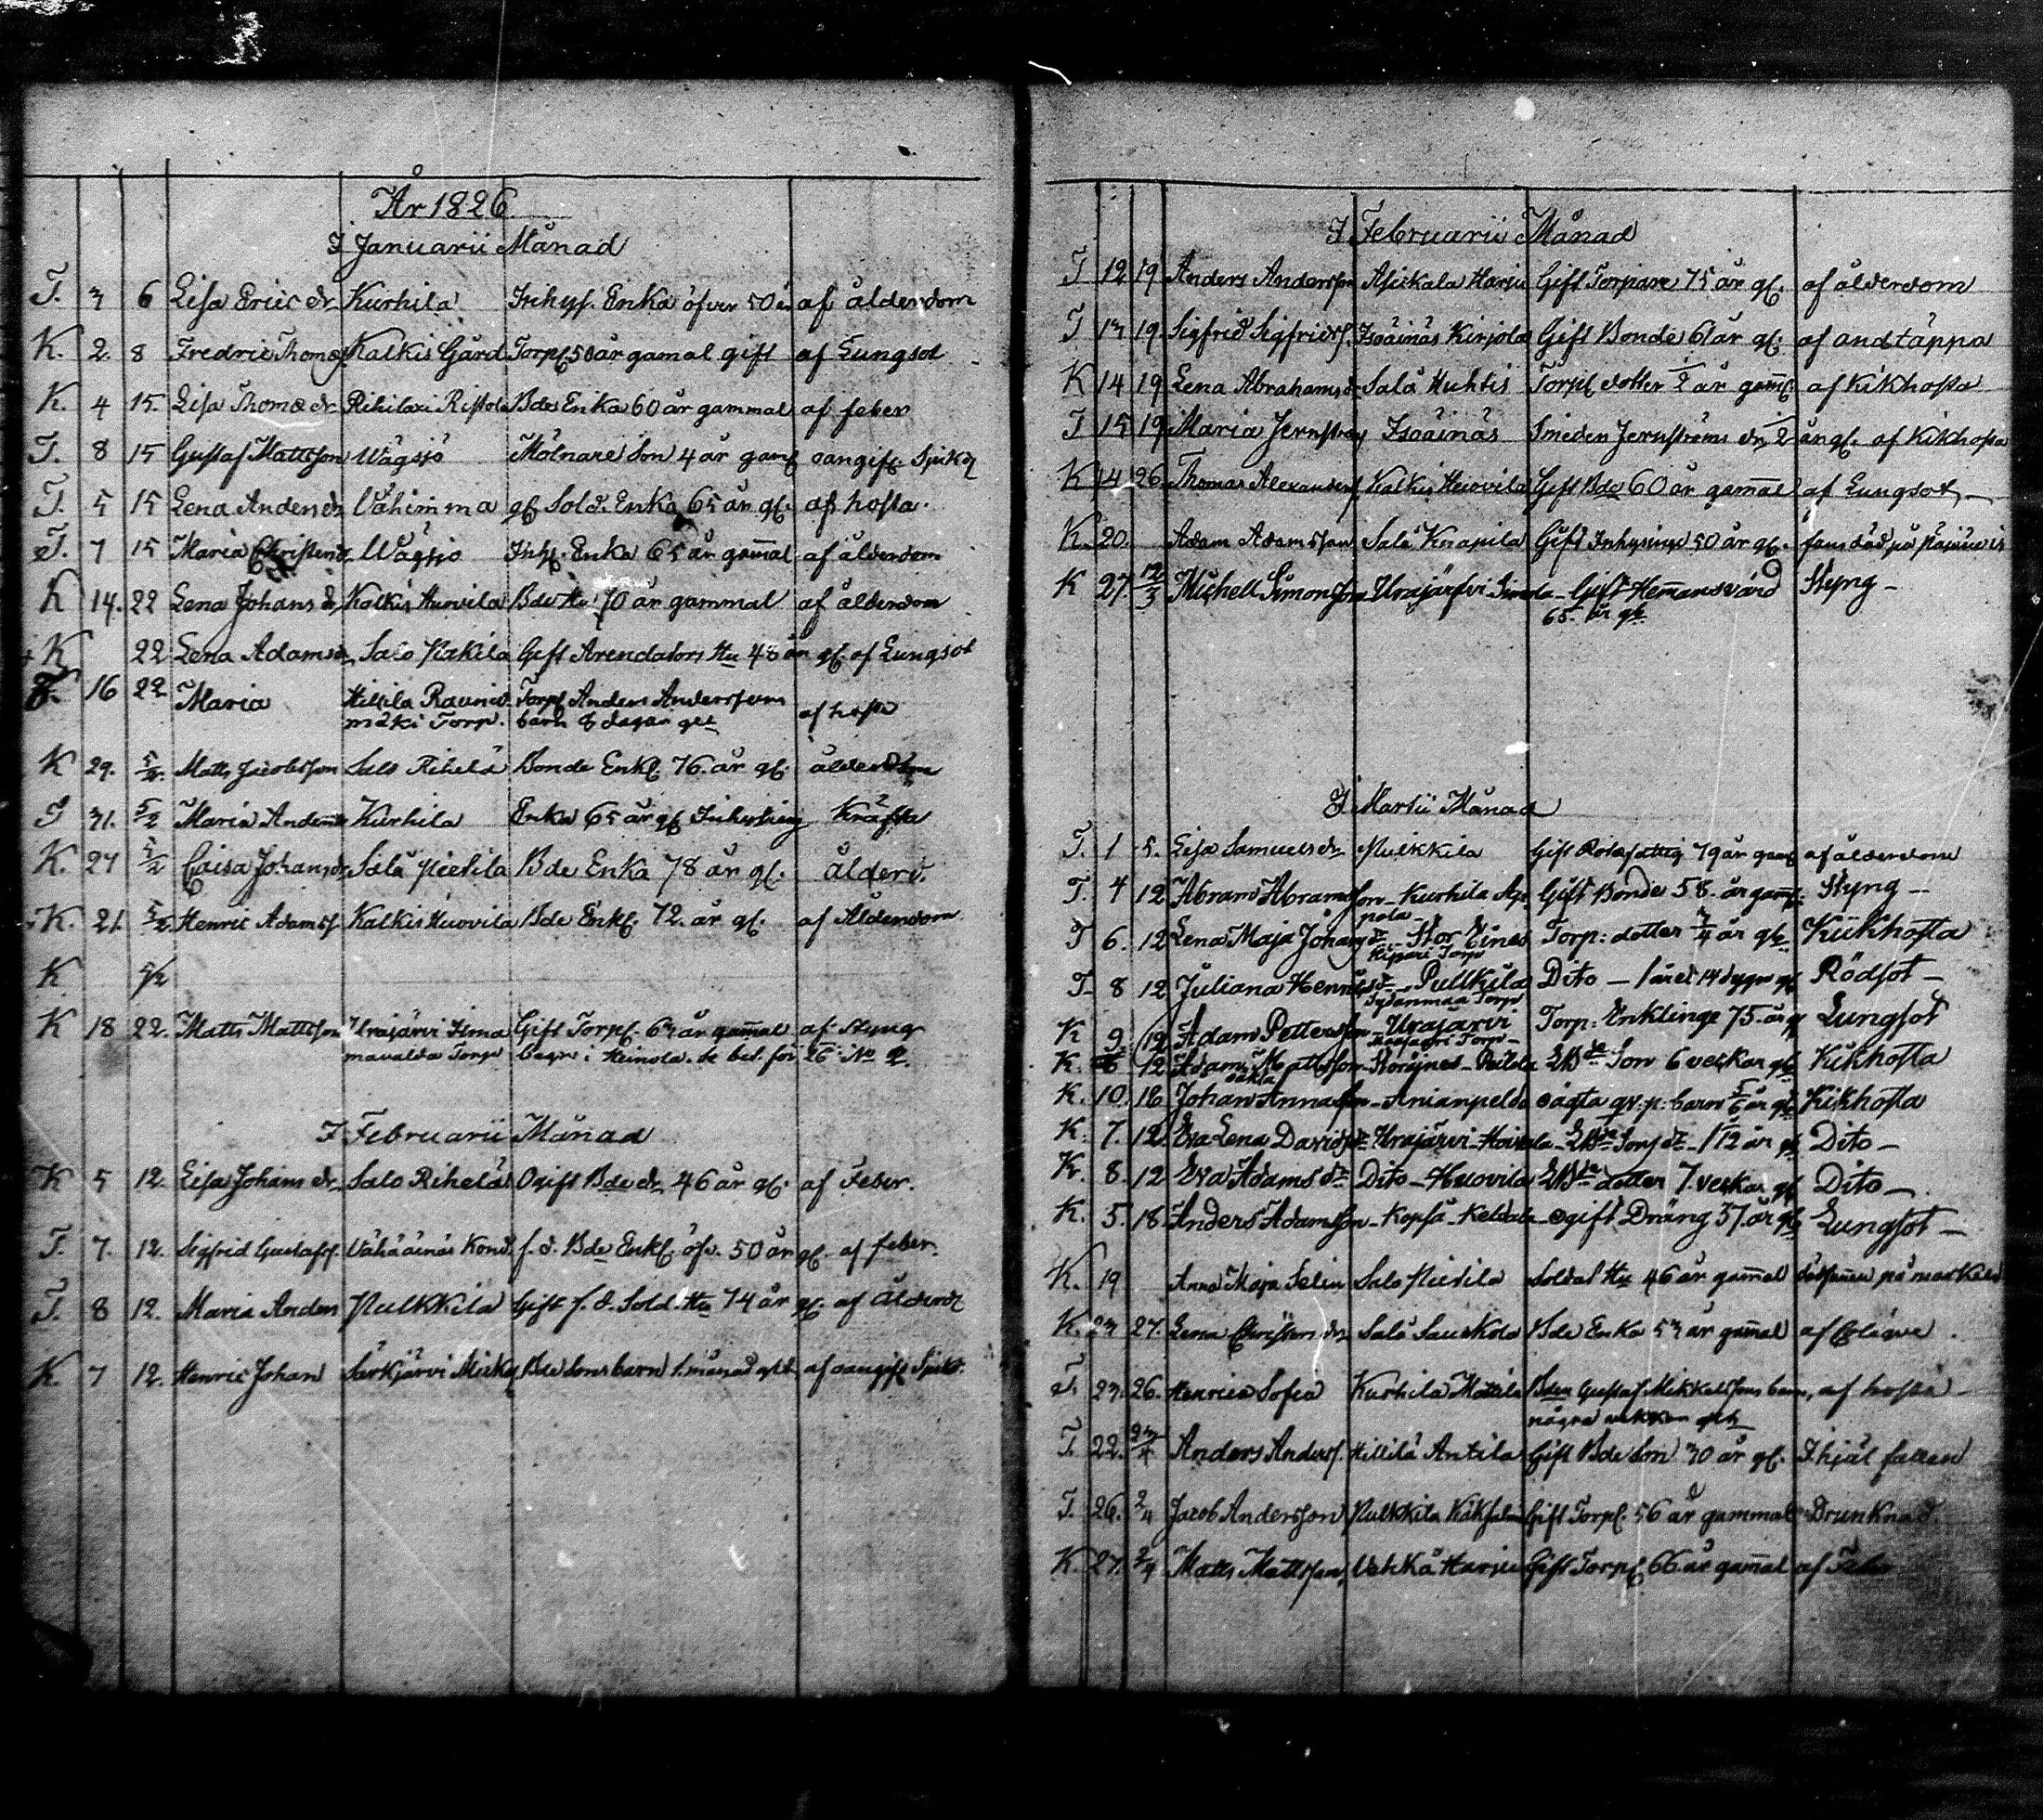 År 1826
I Januarii Månad
T. 3 6 Lisa Eric dr Kurhila Inhys. Enka öfver 50 år af ålderdom
K. 2 8 Fredric Thomæs Kalkis Gård Torp. 50 år gamal gift af Lungsot
K. 4 15. Lisa Thomæ dr Rihilaxi Ristola Bdes Enka 60 år gammal af feber
T. 8 15 Gustaf Mattsson Wägsjö Mölnare Son 4 år gaml oangif. Sjukd
T. 5 15 Lena Anders dr Vähimma gl. Sold. Enka 65 år gl. af hosta.
T. 7 15 Maria Christers dr Wägsjö Inhs. Enka 65 år gam̄al af ålderdom
K 14. 22 Lena Johans dr Kalkis Huovila Bde Hu 70 år gammal af ålderdom
K 22 Lena Adams dr Salo Kakila Gift Arendators Hu 48 år gl. af Lungsot
T. 16 22 Maria Hillilä Raunio Torp. Anders Anderssons af hosta
mäki Torp. barn 8 dagar gl
K 29. 5/2. Matts Jacobsson Salo Rihelä Bonde Enkl. 76. år gl. ålderdom
T 31. 5/2 Maria Anders Kurhila Enka 65 år gl Inhysing Kräfta
K. 27 5/2 Caisa Johans dr Salå Bde Enka 78 år gl. ålderd.
K. 21. 5/2 Henric Adamss Kalkis Huovila Bde Enkl. 72. år gl. af Ålderdom
K 5/2
K 18 22. Matts Mattsson Urajärvi Gift Torp. 63 år gam̄al af styng
mavalda Torp begr. i Heinola. se bet. för 26 No 2.
I Februarii Månad
K 5 12. Lisa Johans dr Salo Rihelä Ogift Bde dr 46 år gl. af Feber.
T. 7. 12. Sigfrid Gustafss. Vähä äinäs f. d. Bde Enkl. öfv. 50 år gl. af feber.
T. 8 12. Maria Anders Pulkkila Gift f. d. Sold. Hu 74 år gl. af ålderd
K 7 12. Henric Johan Särkjärvi Bde Sons barn 1. månad af oangif. Sjukd.
I Februarii Månad
T 12 19 Anders Andersson Asickala Harju Gift Torpare 75 år gl. af ålderdom
T 13 19. Sigfrid Sigfrids. Isoäinäs Kirjola Gift Bonde 61 år gl. af andtäppa
K 14 19 Lena Abrahams dr Salå Huhtis Torp. dotter 1/2 år gam̄l. af kikhosta
T 15 19 Maria Jernström Isoäinäs Smeden Jernströms dr 1/2 år gl. af kikhosta
K 14 26. Thomas Alexanders Kalkis Huovila Gift Bde 60 år gam̄al af Lungsot
K. 20. Adam Adamsson Salå Knapila Gift Inhysinge 50 år gl. fans död på
K 27. 12/3 Michell Simonsson Urajärfvi Gift Hem̄ansvärd Styng
65. år gl.
I Martii Månad
T. 1 5. Lisa Samuels dr Pulkkila Gift Rotefattig 79 år gaml af ålderdom
T. 4 12 Abram Abramsson Kurhila Gift Bonde 58. år gaml. Styng
pola
T 6. 12 Lena Maja Johans dr Stor Eines Torp: dotter 3/4 år gl. Kikhosta
Kipari Torp
T. 8 12 Juliana Henrics dr Pulkkila Dito 1 året 14 dygn gl Rödsot
Sydänmaa Torp
K 9. 12 Adam Pettersson Urajärvi Torp: Enklinge 75. år g Lungsot
K. 12 Adam Mattsson Storäjnes EBde Son 6 veckor gl. Kikhosta
K. 10. 18 Johan Annasson Anianpelda oägta qv: p: barn 5/6 år gl. Kikhosta
K. 7. 12. Eva Lena Davids dr Urajärvi 1 1/2 år gl Dito
K. 8. 12 Eva Adams dr Dito Huovila EBde dotter 7. veckor gl Dito
K. 5. 18. Anders Adamsson Kopså Keldala ogift Dräng 37 år gl. Lungsot
K. 19 Anna Maja Selin Salo Soldat Hu 46 år gam̄al
K. 23 27. Lena Christers dr Salå Sauskola Bde Enka 53 år gam̄al af Colique.
T. 23. 26. Henrica Sofia Kurhila Mattila Bden Gustaf Mikkelssons barn, af hosta
några veckor gl.
T. 22. Anders Anderss. Hillilä Antila Gift Bde Son 30 år gl. Ihjäl fallen
T. 26. 2/4 Jacob Andersson Pulkkila Gift Torp. 56 år gammal Drunknad.
K. 27. 2/4 Matts Mattsson Vehkå Harju Gift Torp. 66. år gam̄al af Feber